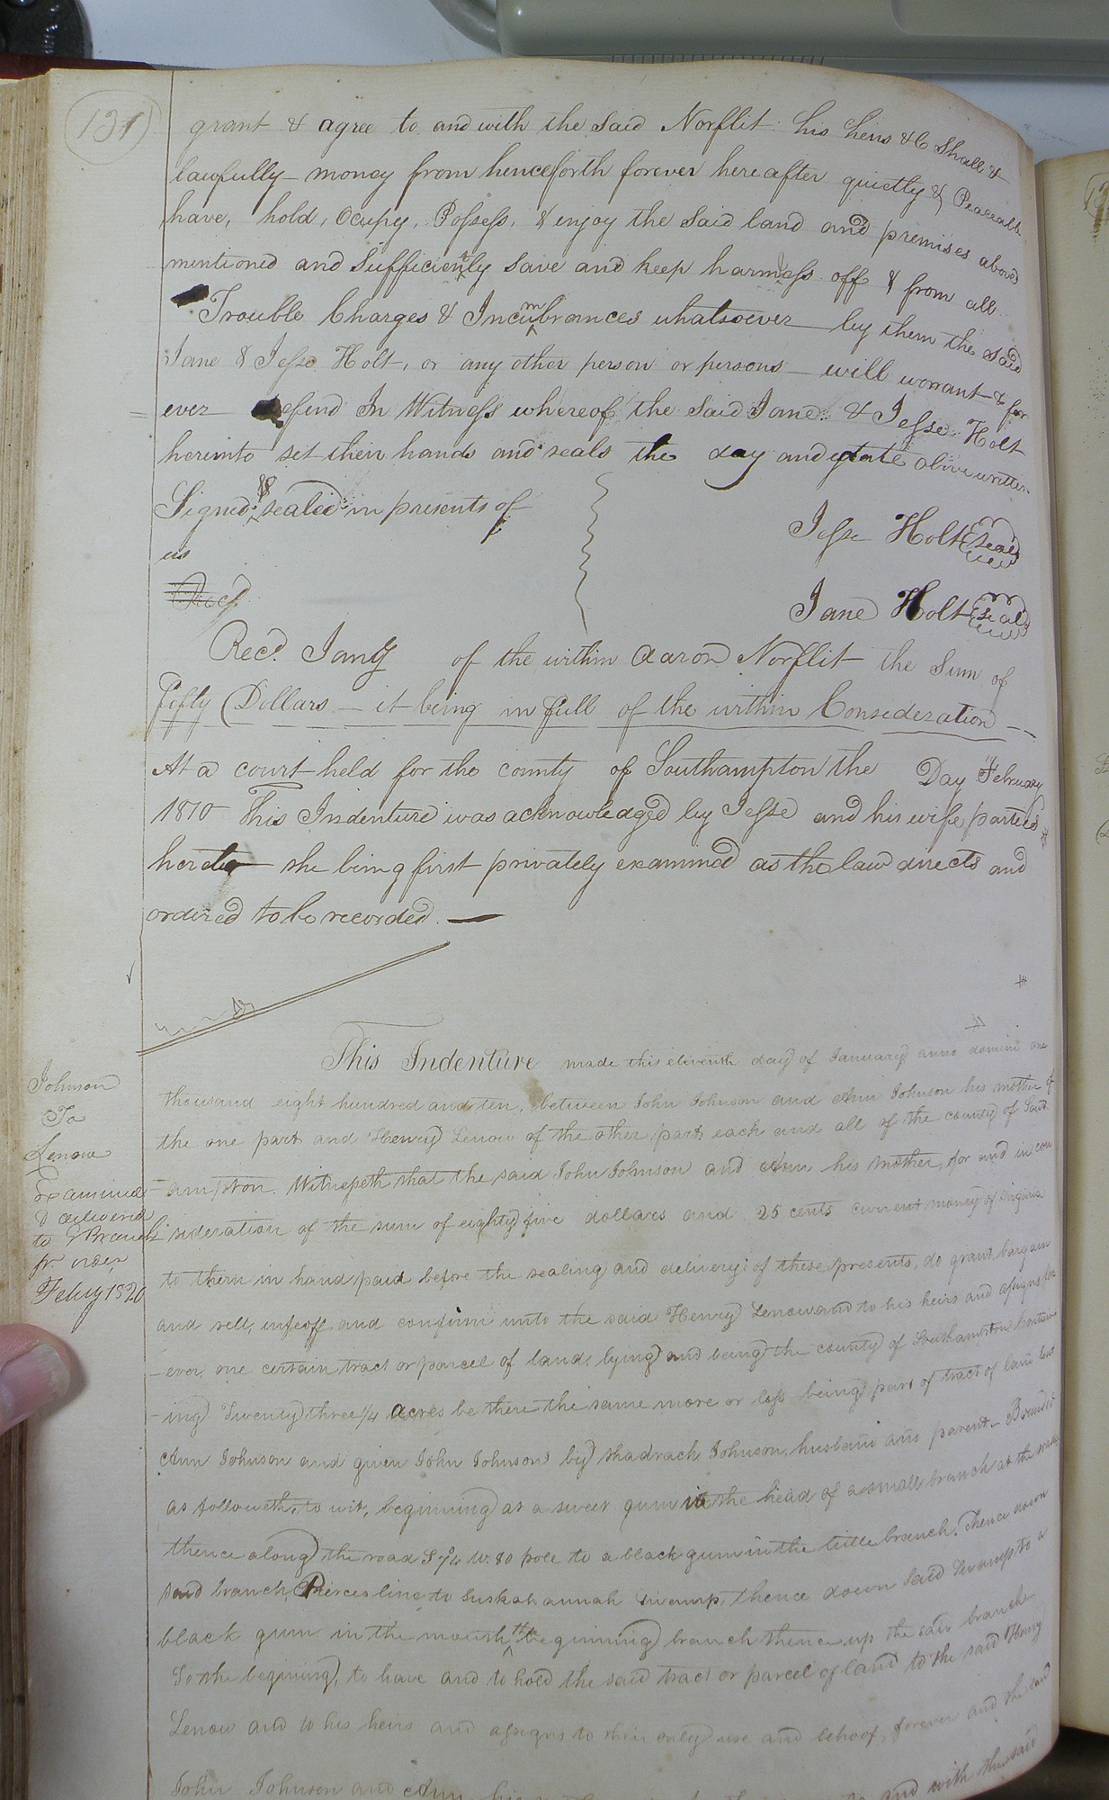 131
grant & agree to and with the Said Norflit his heirs &C Shall &
lawfully money from henceforth forever hereafter quietly & Peaceab
have, hold, Ocupy, Possess, & enjoy the Said land and premises above
mentioned and Sufficiently Save and keep harmless off & from all
Trouble Charges & Incumbrances whatsoever by them the said
Jane & Jesse Holt, or any other person or persons will warrant & for
= ever Defend In Witness whereof the Said Jane & Jesse Holt
hereinto set their hands and seals the day and date above written
Signed & sealed in presents of
us
Jesse Holt Seal
Jane Holt Seal
Recd. Jany of the within Aaron Norflit the Sum of
Fifty Dollars it being in full of the within Consideration
At a court held for the county of Southampton the Day February
1810 This Indenture was acknowledged by Jesse and his wife parties
hereto she being first privately examined as the law directs and
ordired to be recorded.
Johnson
To
Lenow
Examined
& delivered
to
pr order
Feby 1820
This Indenture made this eleventh day of January anno domini one
thousand eight hundred and ten, between John Johnson and Ann Johnson his mother of
the one part and Henry Lenow of the other part each and all of the county of South
ampton. Witnesseth that the said John Johnson and Ann his mother, for and in con
sideration of the sum of eighty five dollars and 25 cents current money of Virginia
to them in hand paid before the sealing and delivery of these presents, do grant, bargain
and sell, infeoff and confirm unto the said Henry Lenow and to his heirs and assigns for
-ever, one certain tract or parcel of land, lying and being the county of Southampton contain
-ing Twenty three 1/4 acres be there the same more or less being part of tract of land
Ann Johnson and given John Johnson by Shadrach Johnson, husband and parent. Bounded
as followeth, to wit, beginning at a sweet gum in the head of a small branch at the road
thence along the road S 74 W. 80 pole to a black gum in the little branch. Thence down
said branch, Pierces line to Suskahannah Swamp, thence down said Swamp, to a
black gum in the mouth the beginning branch thence up the said branch
To the begining, to have and to hold the said tract or parcel of land to the said Henry
Lenow and to his heirs and assigns to their only use and behoof, forever and the said
John Johnson and Ann and with the said